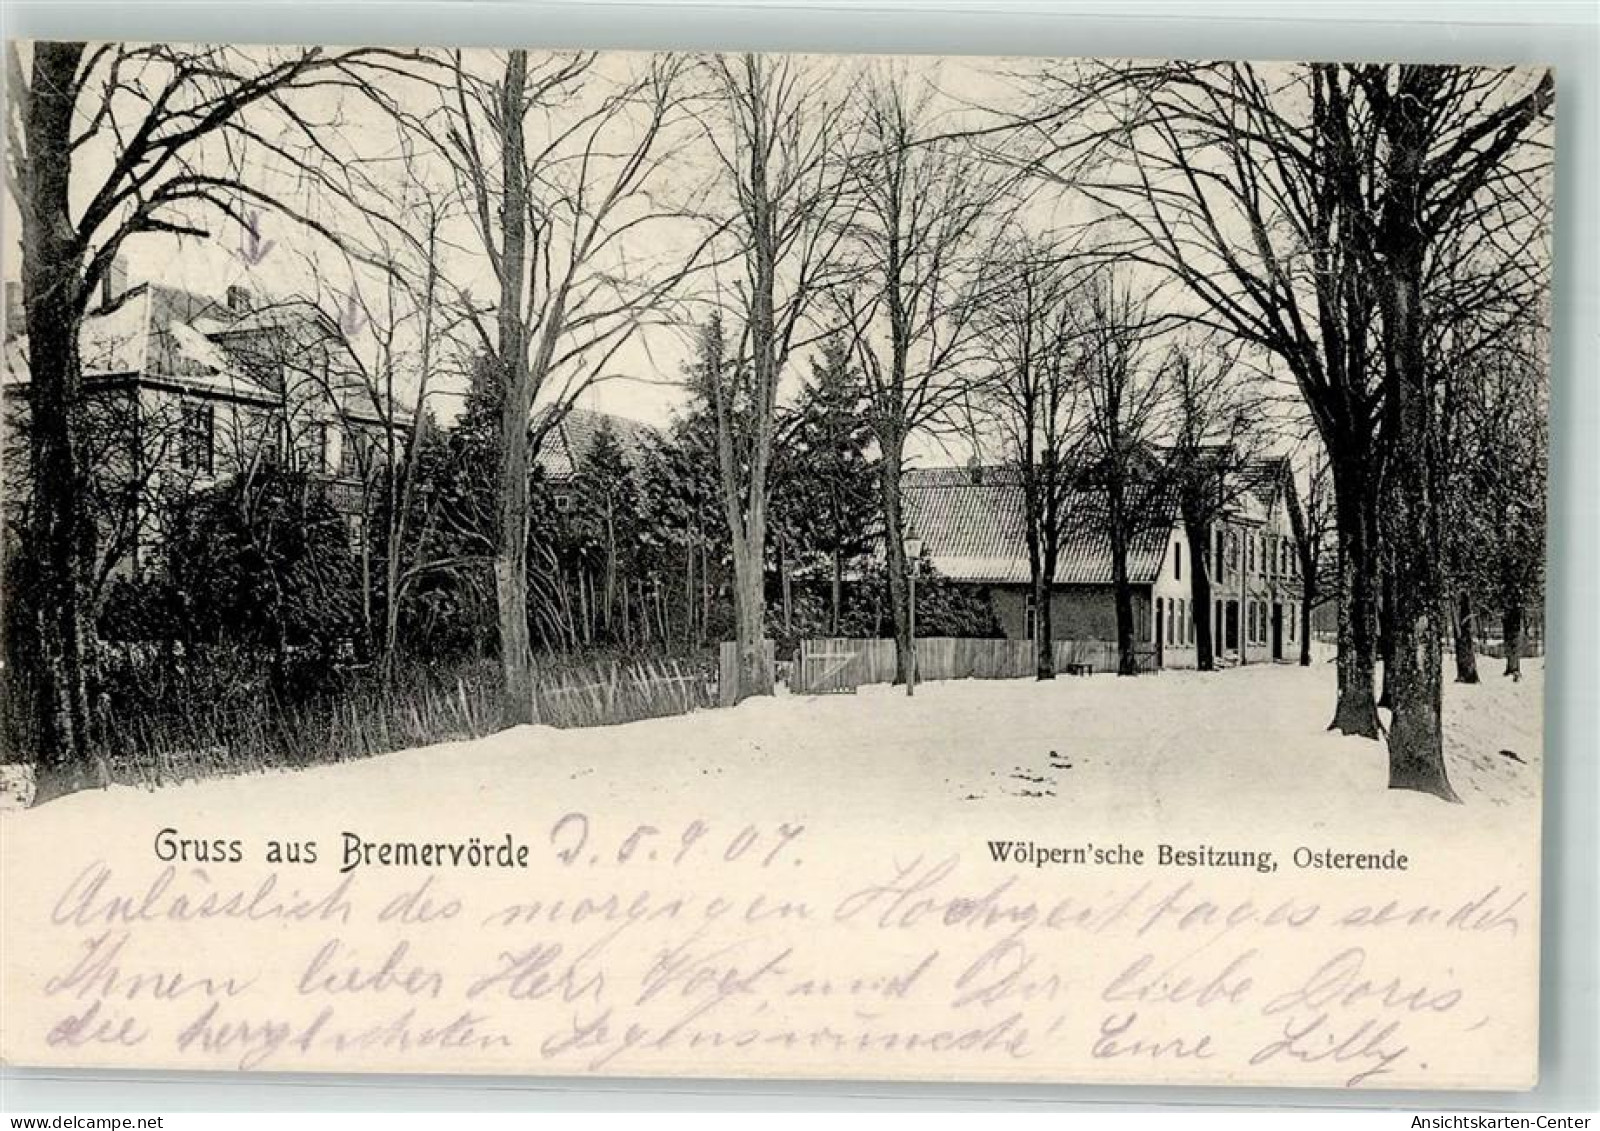 Gruss aus Bremervörde D. 5. 9 07. Wölpern'sche Besitzung, Osterende
Anlässlich des morgigen Hochzeittages sendet
Ihnen lieber Herr Vogt, und Dir, liebe Doris,
die herzlichsten Segenswünsche! Eure Lilly.
Ansichtskarten-Center